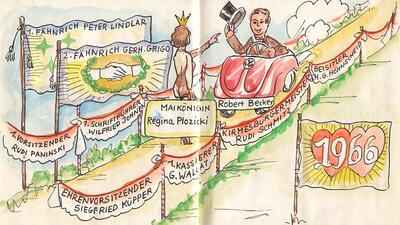 1. FÄHNRICH PETER LINDLAR
2. FÄHNRICH GERH. GRIGO
1. VORSITZENDER
RUDI PANINSKI
1. SCHRIFTFÜHRER
WILFRIED JOHNEN
MAIKÖNIGIN
Regina Plozicki
Robert Becker
EHRENVORSITZENDER
SIEGFRIED KÜPPER
1. KASSIERER
G. WALLAT
KIRMESBÜRGERMEISTER
RUDI SCHMITZ
BEISITZER
1966